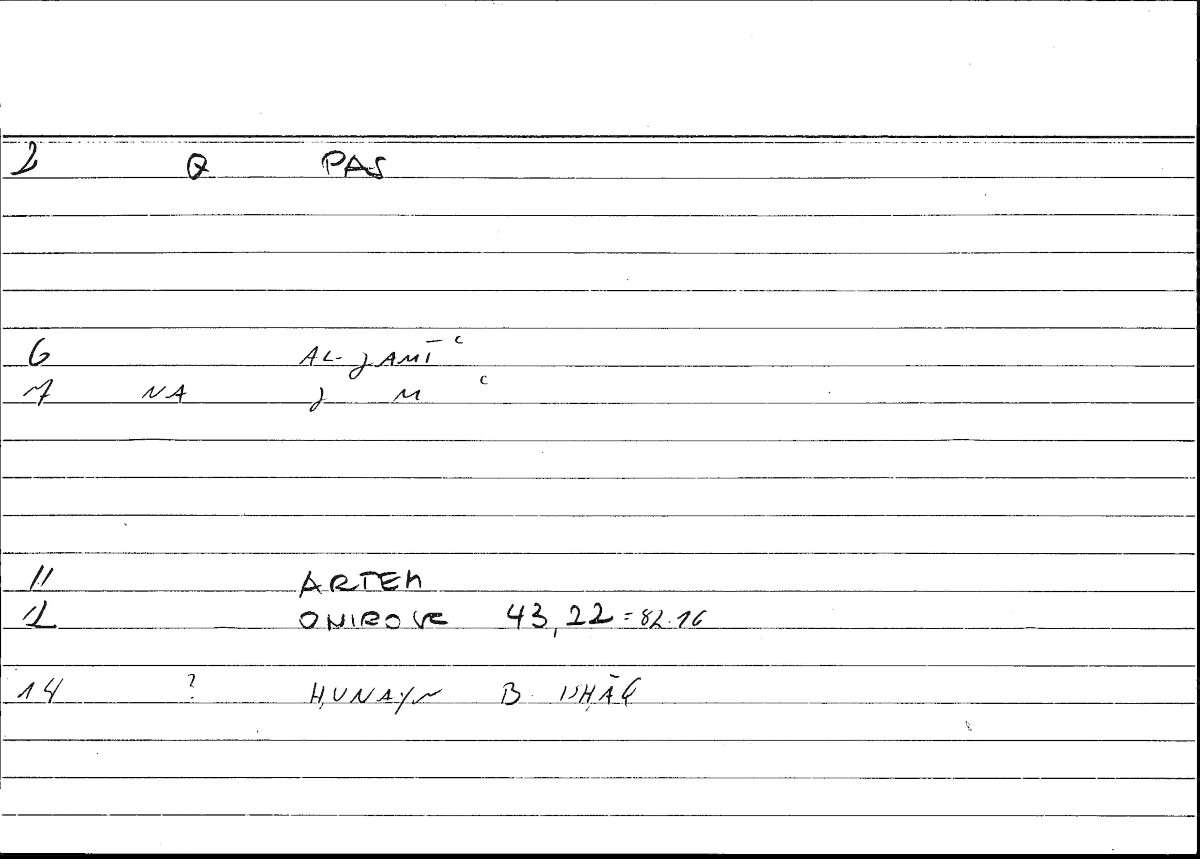 2 Q PAS
6 AL-JĀMIʿ
7 NA J M ʿ
11 ARTEM
12 ONIROCR 43,22 = 82.16
14 ? ḤUNAYN B. ISḤĀQ